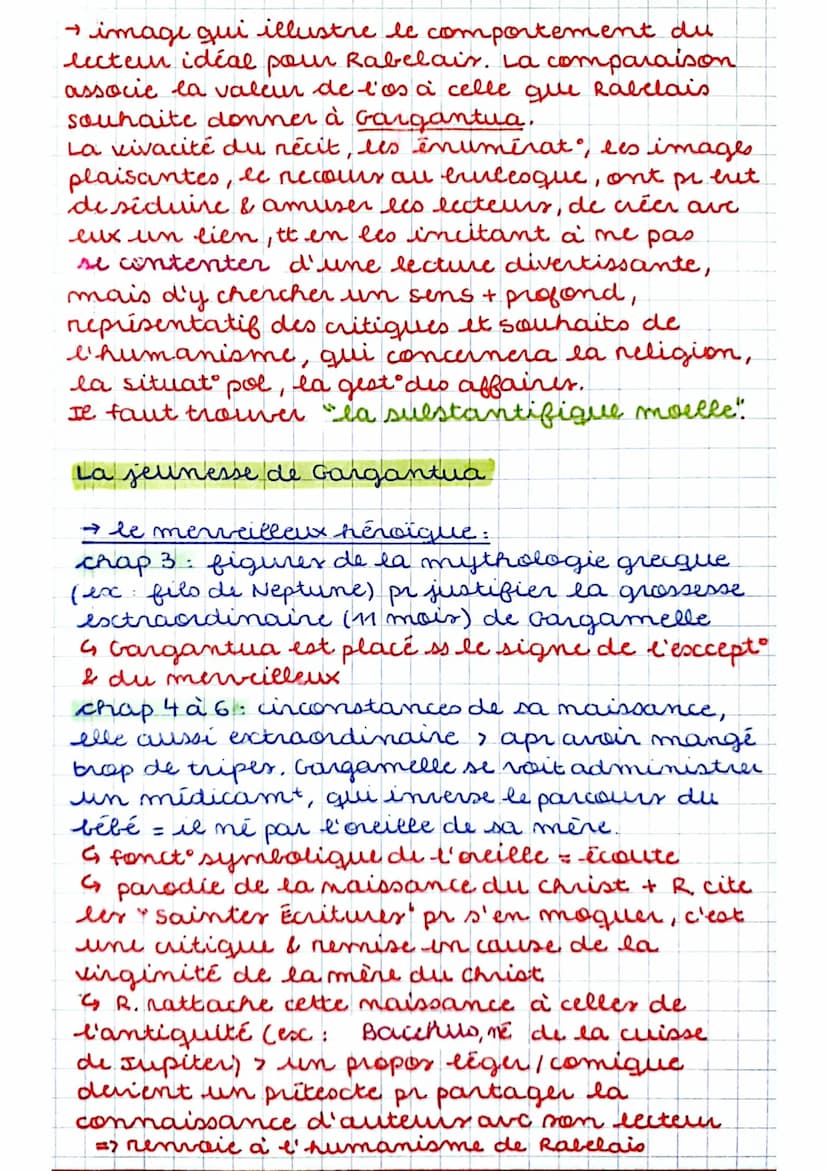 → image qui illustre le comportement du
lecteur idéal pour Rabelais. La comparaison
associe la valeur de l'os à celle que Rabelais
souhaite donner à Gargantua.
La vivacité du récit, les énumérat°, les images
plaisantes, le recours au burlesque, ont pr but
de séduire & amuser les lecteurs, de créer avc
eux un lien, tt en les incitant à ne pas
se contenter d'une lecture divertissante,
mais d'y chercher un sens + profond,
représentatif des critiques et souhaits de
l'humanisme, qui concernera la religion,
la situat° pol, la gest° des affaires.
Il faut trouver "la substantifique moelle".
La jeunesse de Gargantua
→ le merveilleux héroïque :
chap 3 : figures de la mythologie grecque
(ex : fils de Neptune) pr justifier la grossesse
extraordinaire (11 mois) de Gargamelle
↳ Gargantua est placé ss le signe de l'except°
& du merveilleux
chap 4 à 6 : circonstances de sa naissance,
elle aussi extraordinaire > apr avoir mangé
trop de tripes, Gargamelle se voit administrer
un médicamt, qui inverse le parcours du
bébé = il né par l'oreille de sa mère.
↳ fonct° symbolique de l'oreille = écoute
↳ parodie de la naissance du Christ + R. cite
les "Saintes Écritures" pr s'en moquer, c'est
une critique & remise en cause de la
virginité de la mère du Christ
↳ R. rattache cette naissance à celles de
l'antiquité (ex : Bacchus, né de la cuisse
de Jupiter) > un propos léger/comique
devient un prétexte pr partager la
connaissance d'auteurs avc son lecteur
=> renvoie à l'humanisme de Rabelais